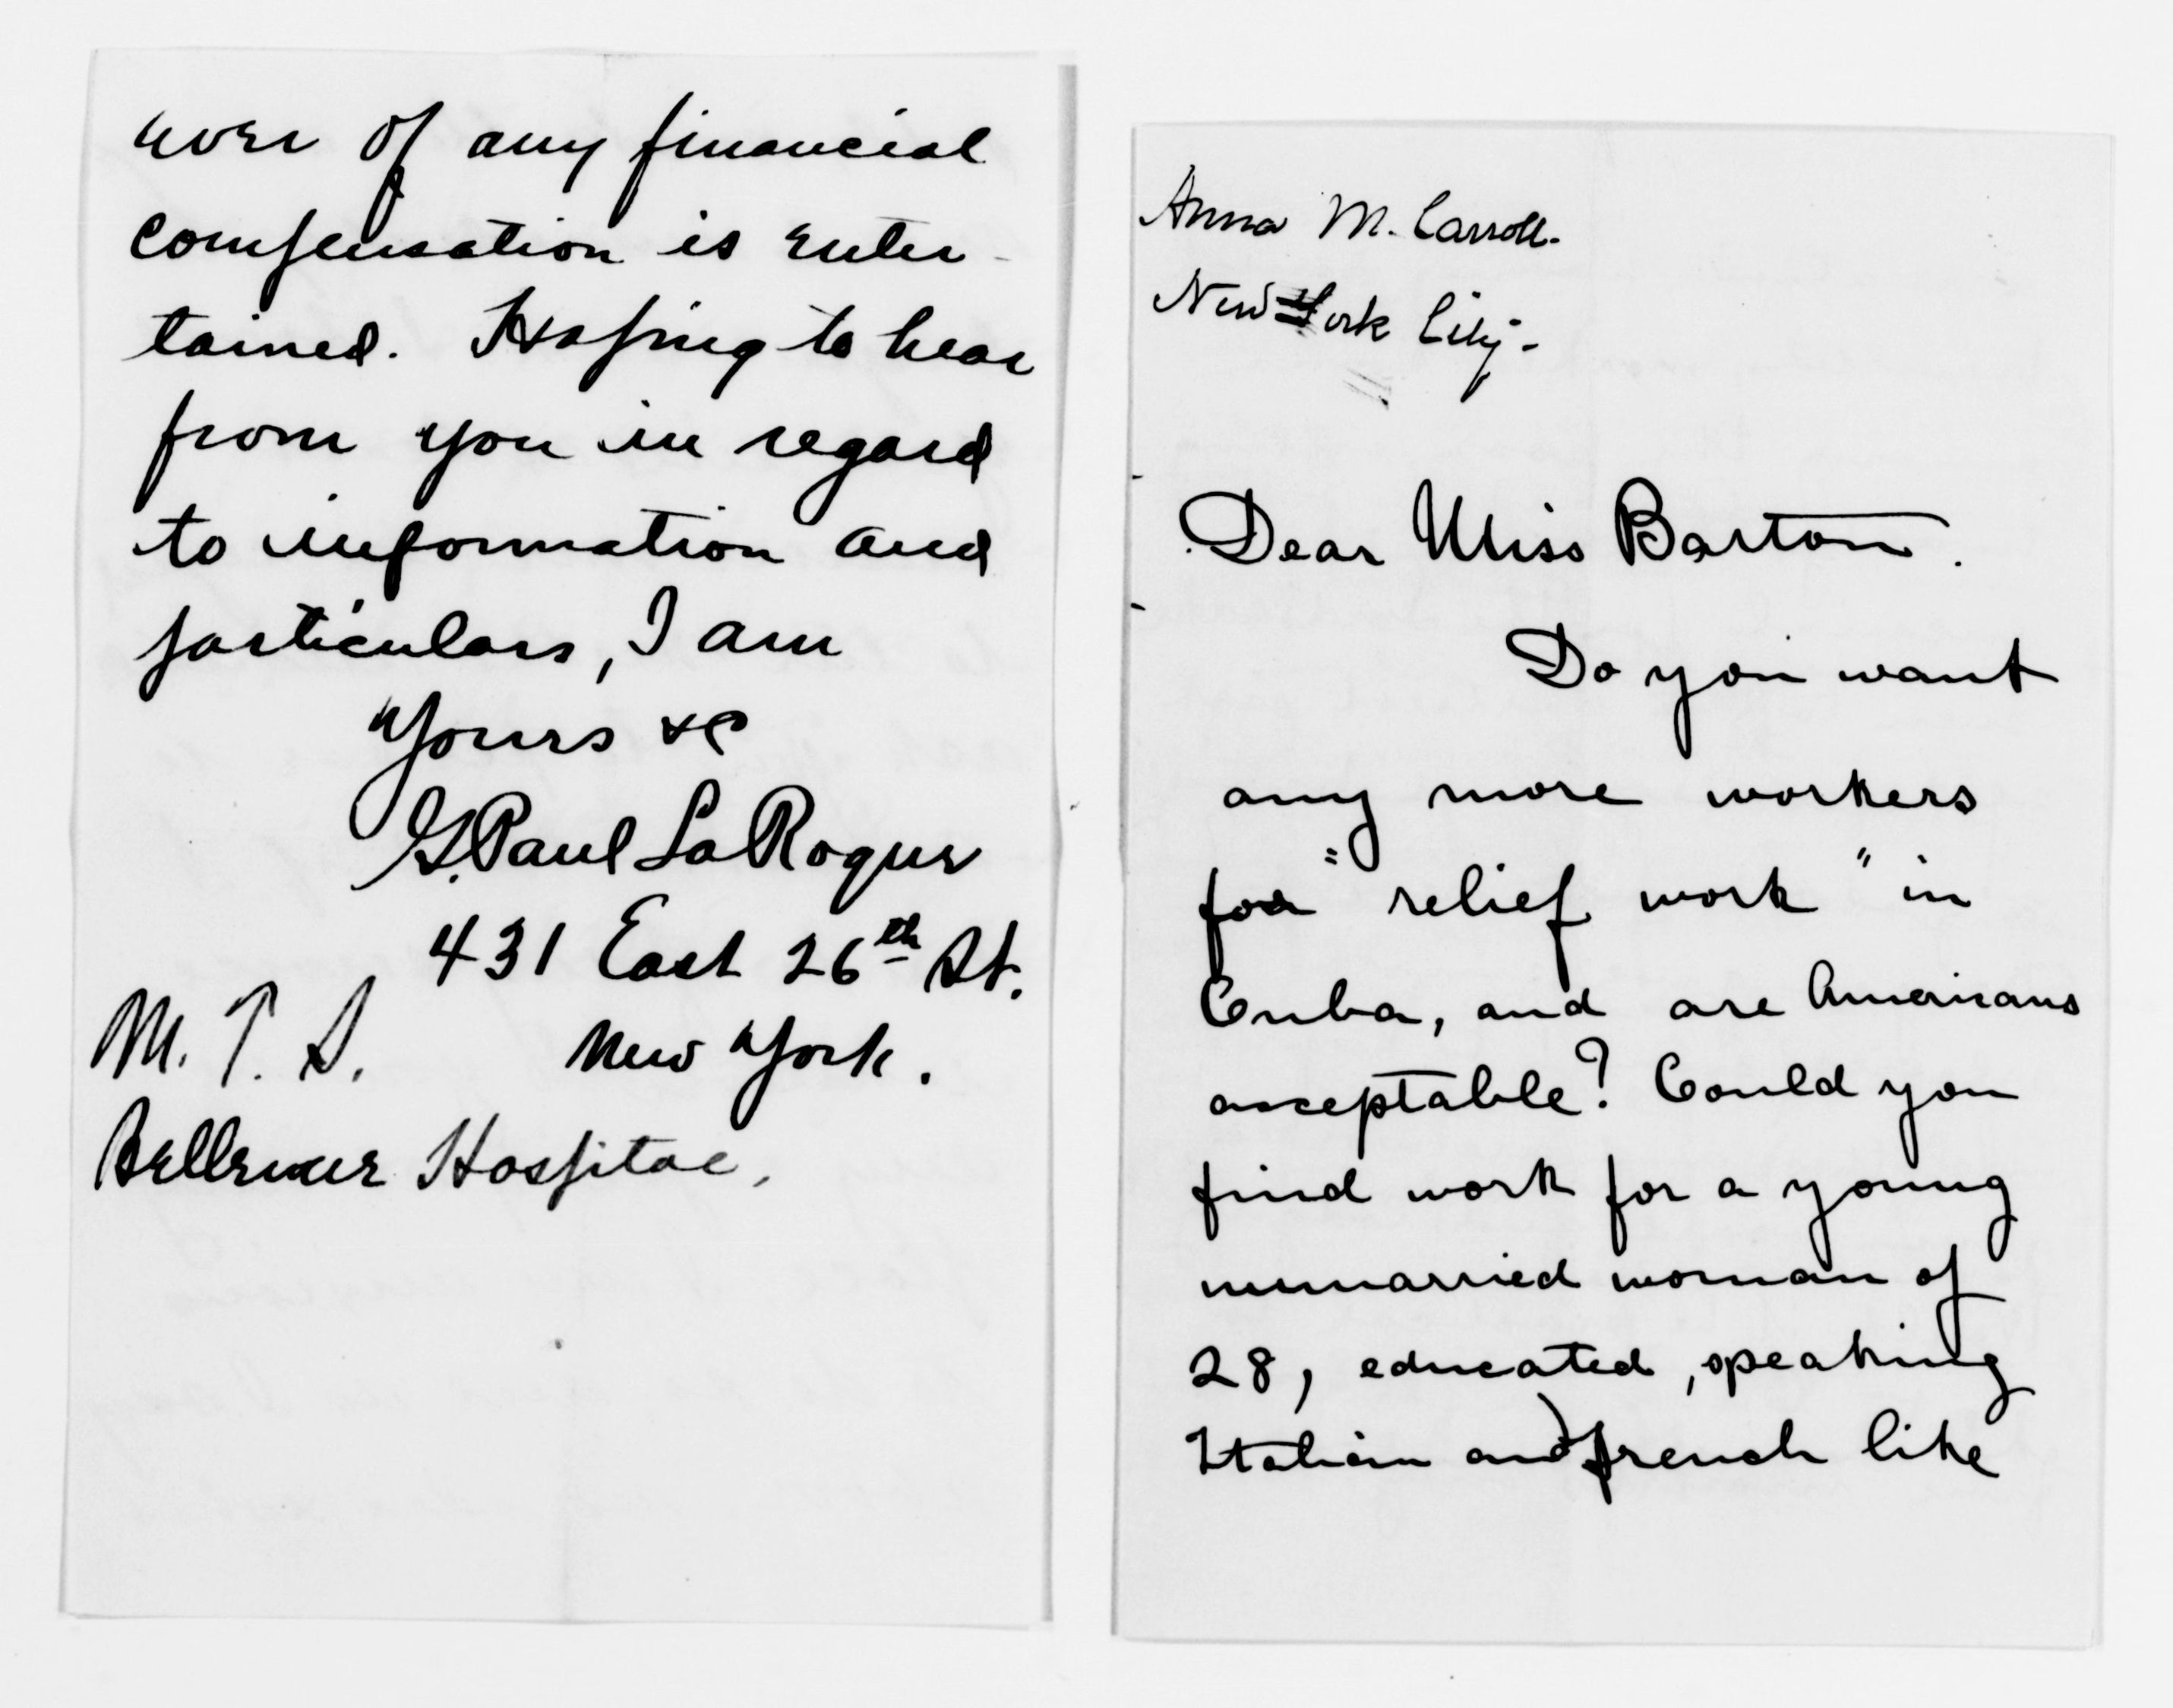 ever of any financial
compensation is enter-
tained. Hoping to hear
from you in regard
to information and
particulars, I am
Yours &c
G. Paul LaRoque
431 East 26th St.
M. T. S. New York.
Bellevue Hospital,
Anna M. Carroll.
New York City.
Dear Miss Barton.
Do you want
any more workers
for "relief work" in
Cuba, and are Americans
acceptable? Could you
find work for a young
unmarried woman of
28, educated, speaking
Italian and French like